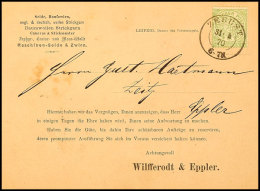 Seide, Baumwollen,
engl. & deutsch. wollne Strickgarn
Baumwollnes Strickgarn
Maschinen-Seide & Zwirn.
LEIPZIG, Datum des Poststempels.
LEIPZIG
Herrn Gust. Hartmann
Zeitz
Hierdurch haben wir das Vergnügen, Ihnen anzuzeigen, dass unser HERR
Eppler
in einigen Tagen die Ehre haben wird, Ihnen seine Aufwartung zu machen.
Haben Sie die Güte, bis dahin Ihre schätzbaren Aufträge zu reserviren,
deren promptester Ausführung Sie sich im Voraus versichert halten können.
Achtungsvoll
Wilfferodt & Eppler.